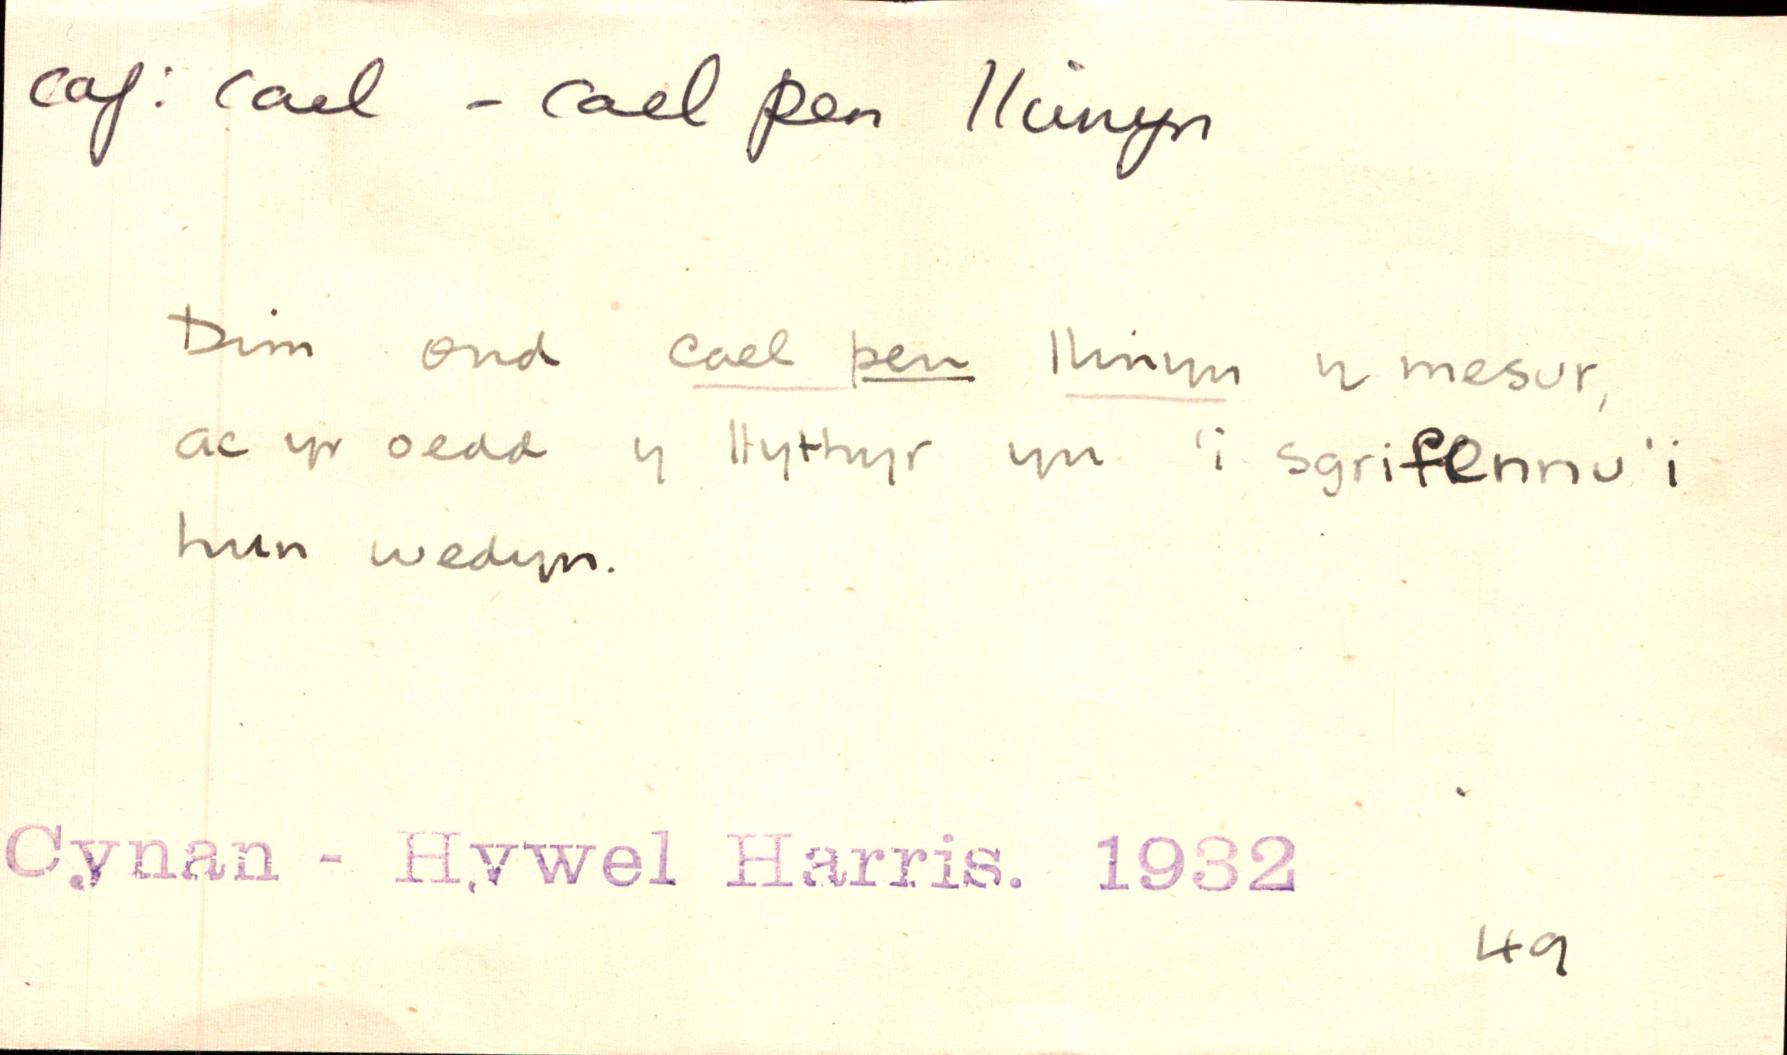 caf: cael - cael pen llinyn
Dim ond cael pen llinyn y mesur,
ac yr oedd y llythyr yn 'i sgrifennu 'i
hun wedyn.
Cynan - Hywel Harris. 1932
49